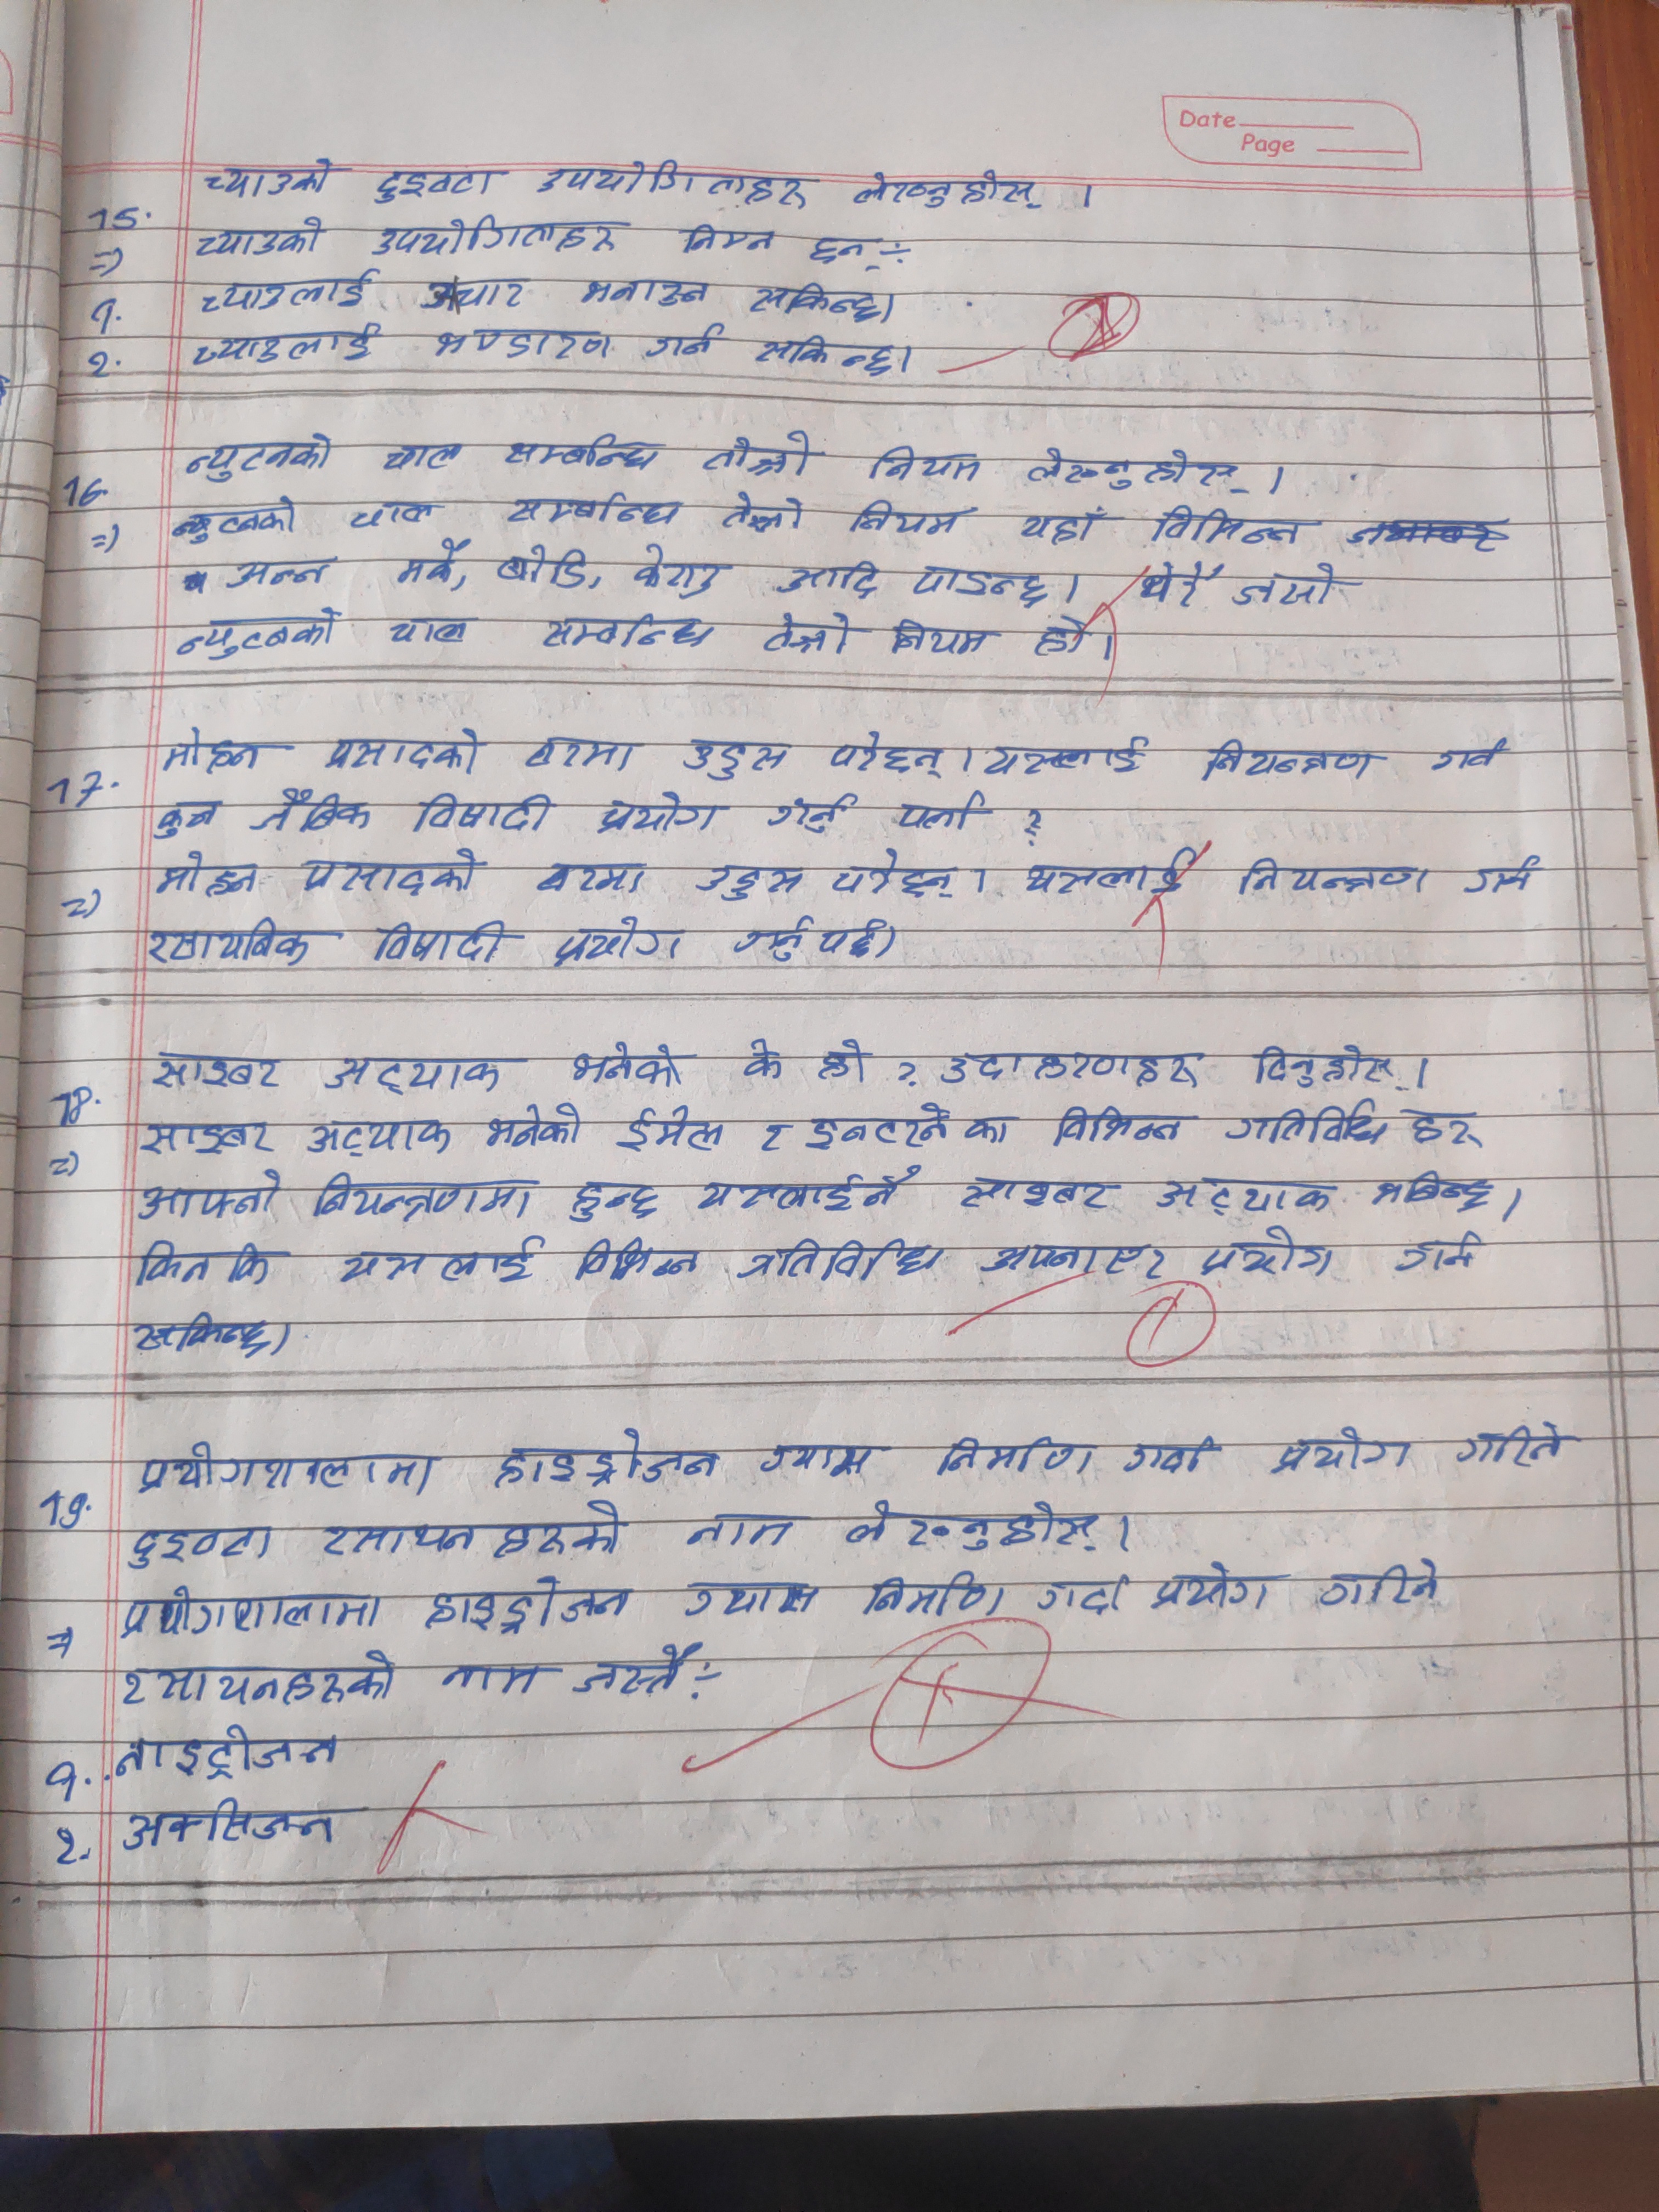 Date
Page
15. च्याउको दुइवटा उपयोगिताहरु लेख्नुहोस् ।
=) च्याउको उपयोगिताहरु निम्न छन् ÷
१. च्याउलाई अचार भनाउन सकिन्छ।
२. च्याउलाई भण्डारण गर्न सकिन्छ।
16. न्युटनको चाल सम्बन्धि तेस्रो नियम लेख्नुहोस् ।
=) न्युटनको चाल सम्बन्धि तेस्रो नियम यहाँ विभिन्न
अन्न मकै, बोडि, केराउ आदि पाइन्छ। धेरै जसो
न्युटनको चाल सम्बन्धि तेस्रो नियम हो।
17. मोहन प्रसादको घरमा उडुस परेछन् । यसलाई नियन्त्रण गर्न
कुन जैबिक विषादी प्रयोग गर्नु पर्ला ?
=) मोहन प्रसादको घरमा उडुस परेछन् । यसलाई नियन्त्रण गर्न
रसायनिक विषादी प्रयोग गर्नुपर्छ।
18. साइबर अट्याक भनेको के हो ? उदाहरणहरु दिनुहोस् ।
=) साइबर अट्याक भनेको ईमेल र इनटरनेका विभिन्न गतिविधि हरु
आफ्नो नियन्त्रणमा हुन्छ यसलाईनै साइबर अट्याक भनिन्छ।
किनकि यसलाई विभिन्न गतिविधि अपनाएर प्रयोग गर्न
सकिन्छ।
19. प्रयोगशालामा हाइड्रोजन ग्यास निर्माण गर्दा प्रयोग गरिने
दुइवटा रसायन हरुको नाम लेख्नुहोस् ।
=) प्रयोगशालामा हाइड्रोजन ग्यास निर्माण गर्दा प्रयोग गरिने
रसायनहरुको नाम जस्तै ÷
१. नाइट्रोजन
२. अक्सिजन